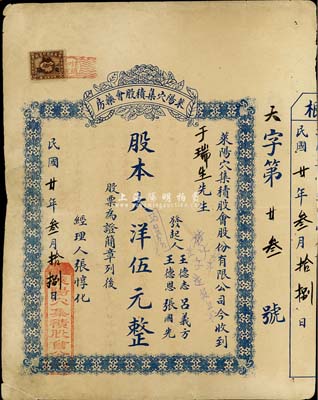 根
民國廿年叁月拾捌日
天字第廿叁號
萊陽穴集積股會藥房
萊陽穴集積股會股份有限公司今收到
于瑞生先生
發起人
王德志 呂義方
王德恩 張國先
股本大洋伍元整
股票為證簡章列後
經理人張惇化
民國廿年叁月拾捌日